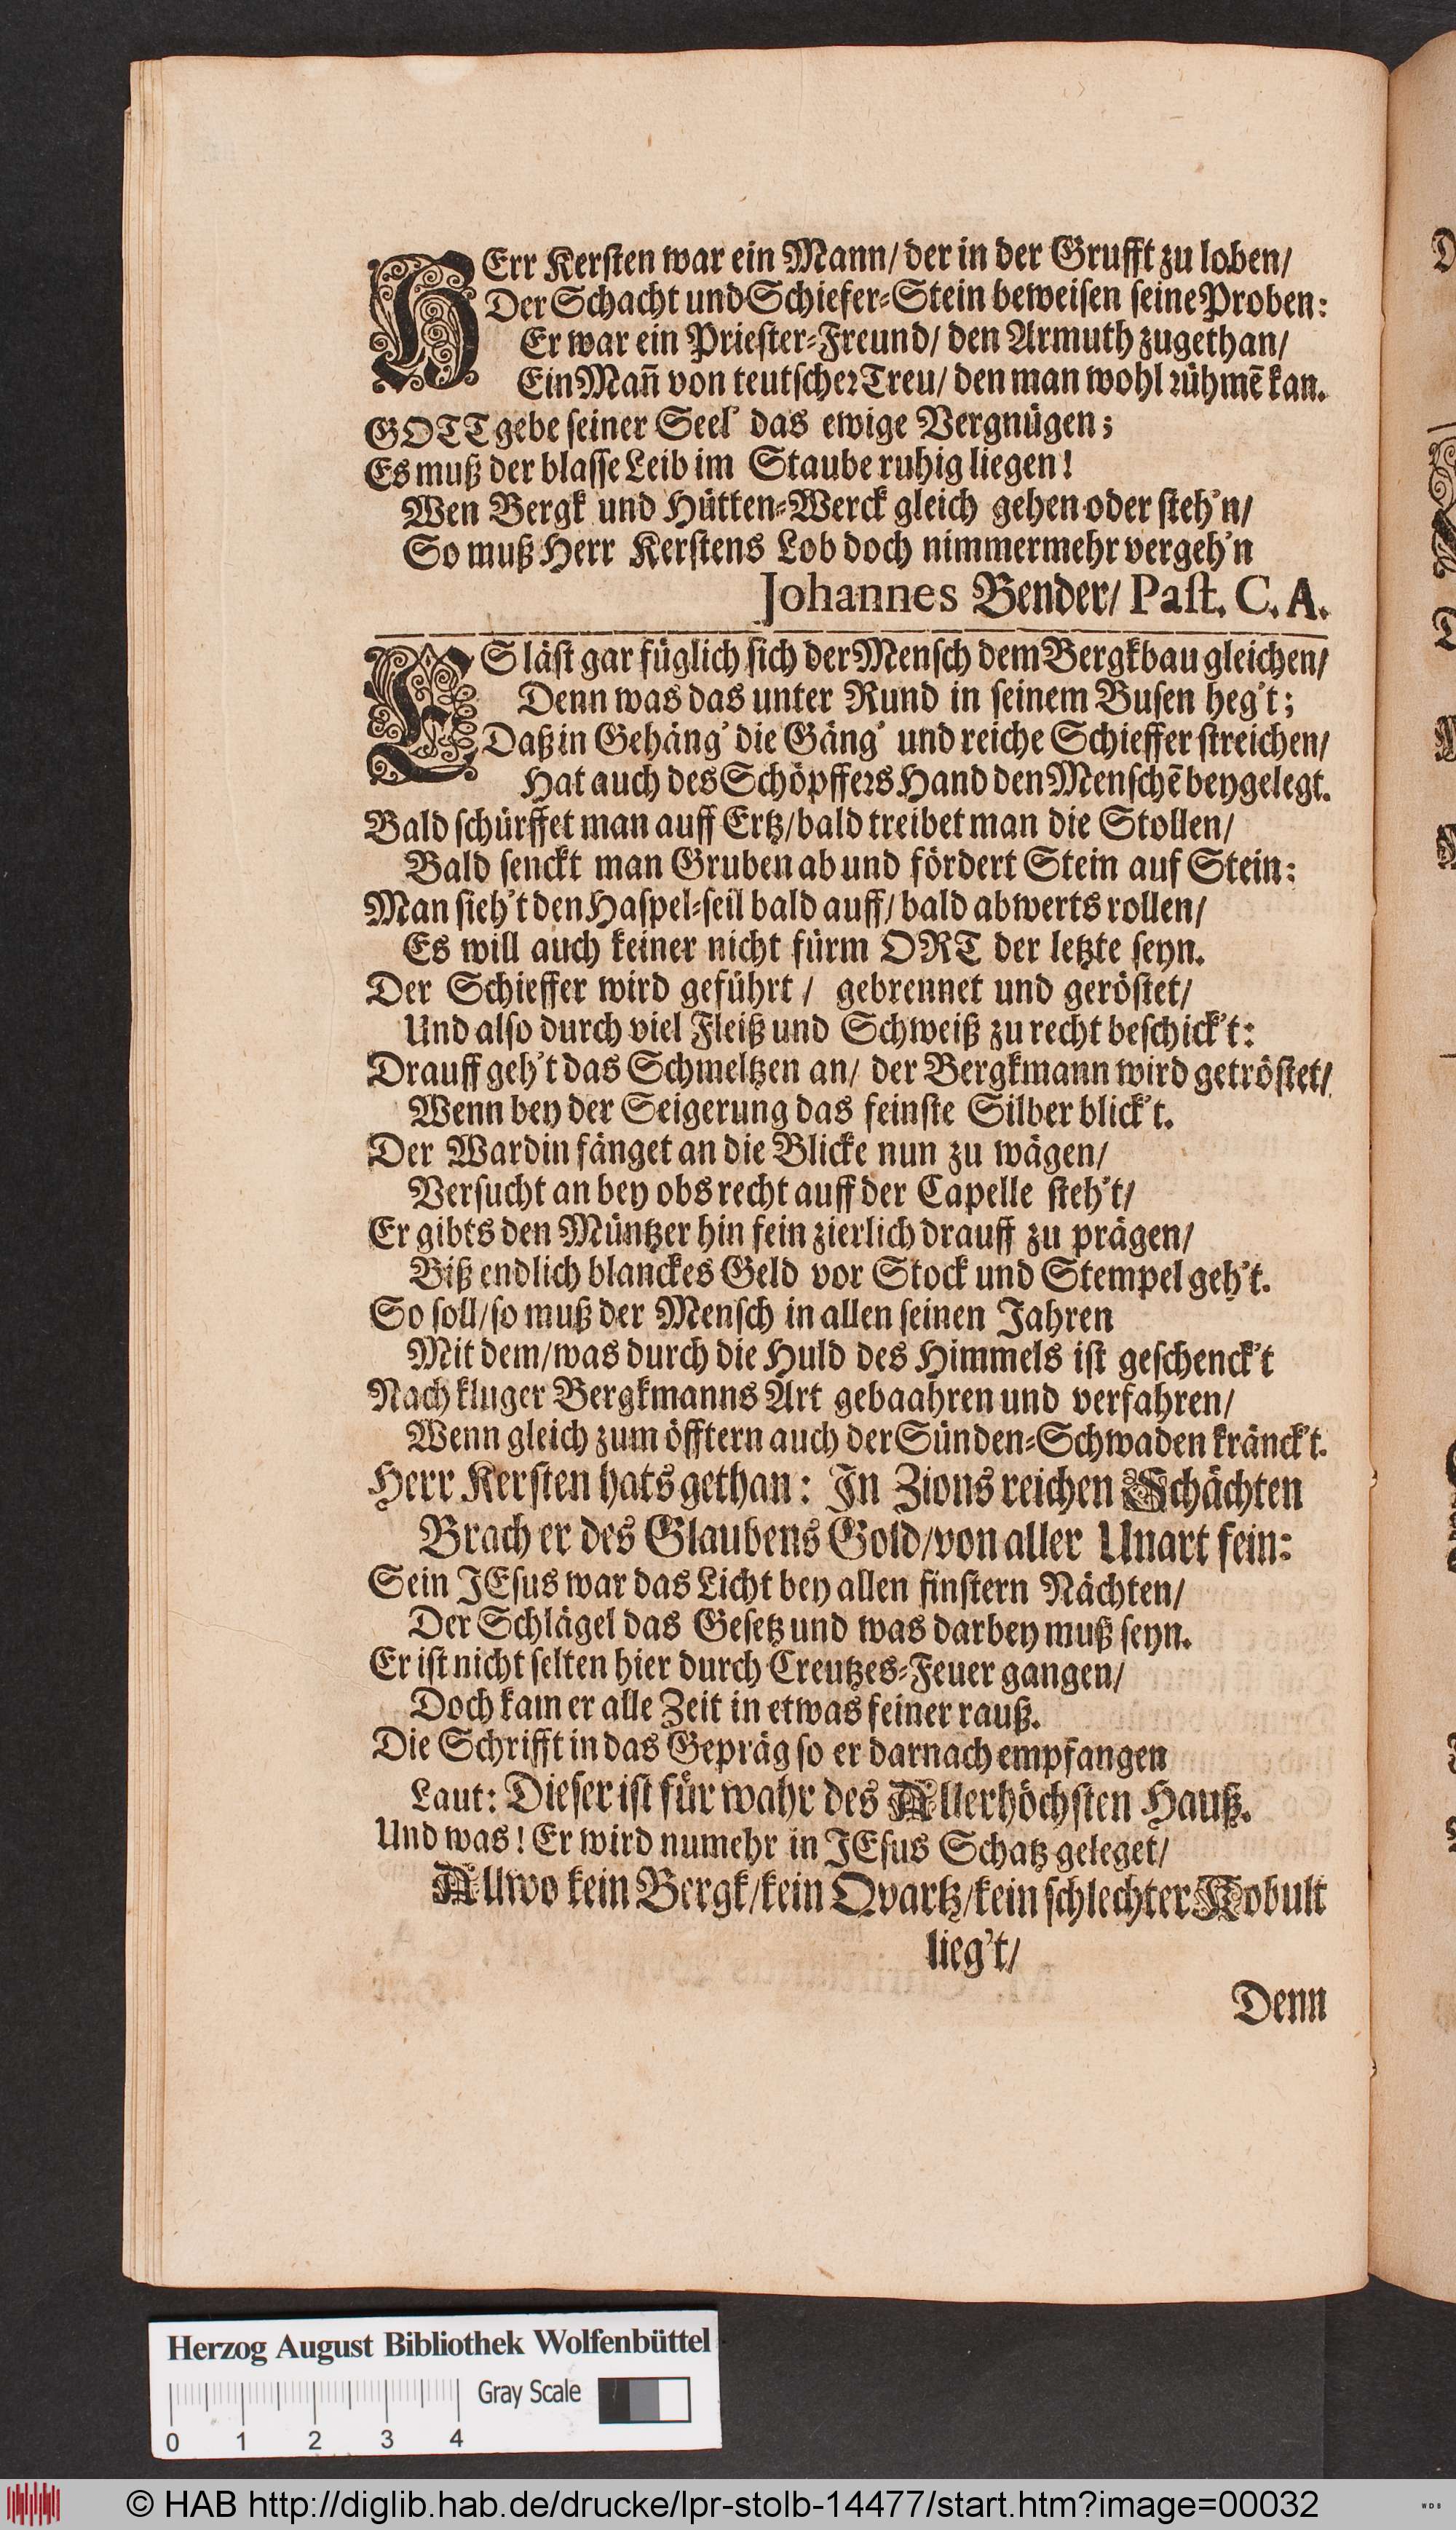 HErr Kersten war ein Mann/ der in der Grufft zu loben/
Der Schacht und Schiefer-Stein beweisen seine Proben:
Er war ein Priester-Freund/ den Armuth zugethan/
Ein Mañ von teutscher Treu/ den man wohl rühmē kan.
GOTT gebe seiner Seel' das ewige Vergnügen;
Es muß der blasse Leib im Staube ruhig liegen!
Wen Bergk und Hütten-Werck gleich gehen oder steh'n/
So muß Herr Kerstens Lob doch nimmermehr vergeh'n
Johannes Bender/ Past. C. A.
ES läst gar füglich sich der Mensch dem Bergkbau gleichen/
Denn was das unter Rund in seinem Busen heg't;
Daß in Gehäng' die Gäng' und reiche Schieffer streichen/
Hat auch des Schöpffers Hand den Menschē beygelegt.
Bald schürffet man auff Ertz/ bald treibet man die Stollen/
Bald senckt man Gruben ab und fördert Stein auf Stein:
Man sieh't den Haspel-seil bald auff/ bald abwerts rollen/
Es will auch keiner nicht fürm ORT der letzte seyn.
Der Schieffer wird geführt / gebrennet und geröstet/
Und also durch viel Fleiß und Schweiß zu recht beschick't:
Drauff geh't das Schmeltzen an/ der Bergkmann wird getröstet/
Wenn bey der Seigerung das feinste Silber blick't.
Der Wardin fänget an die Blicke nun zu wägen/
Versucht an bey obs recht auff der Capelle steh't/
Er gibts den Müntzer hin fein zierlich drauff zu prägen/
Biß endlich blanckes Geld vor Stock und Stempel geh't.
So soll/ so muß der Mensch in allen seinen Jahren
Mit dem/ was durch die Huld des Himmels ist geschenck't
Nach kluger Bergkmanns Art gebaahren und verfahren/
Wenn gleich zum öfftern auch der Sünden-Schwaden kränck't.
Herr Kersten hats gethan: In Zions reichen Schächten
Brach er des Glaubens Gold/ von aller Unart fein:
Sein JEsus war das Licht bey allen finstern Nächten/
Der Schlägel das Gesetz und was darbey muß seyn.
Er ist nicht selten hier durch Creutzes-Feuer gangen/
Doch kam er alle Zeit in etwas feiner rauß.
Die Schrifft in das Gepräg so er darnach empfangen
Laut: Dieser ist für wahr des Allerhöchsten Hauß.
Und was! Er wird numehr in JEsus Schatz geleget/
Allwo kein Bergk/ kein Qvartz/ kein schlechter Kobult
lieg't/
Denn
Herzog August Bibliothek Wolfenbüttel
Gray Scale
0 1 2 3 4
© HAB http://diglib.hab.de/drucke/lpr-stolb-14477/start.htm?image=00032
WDB